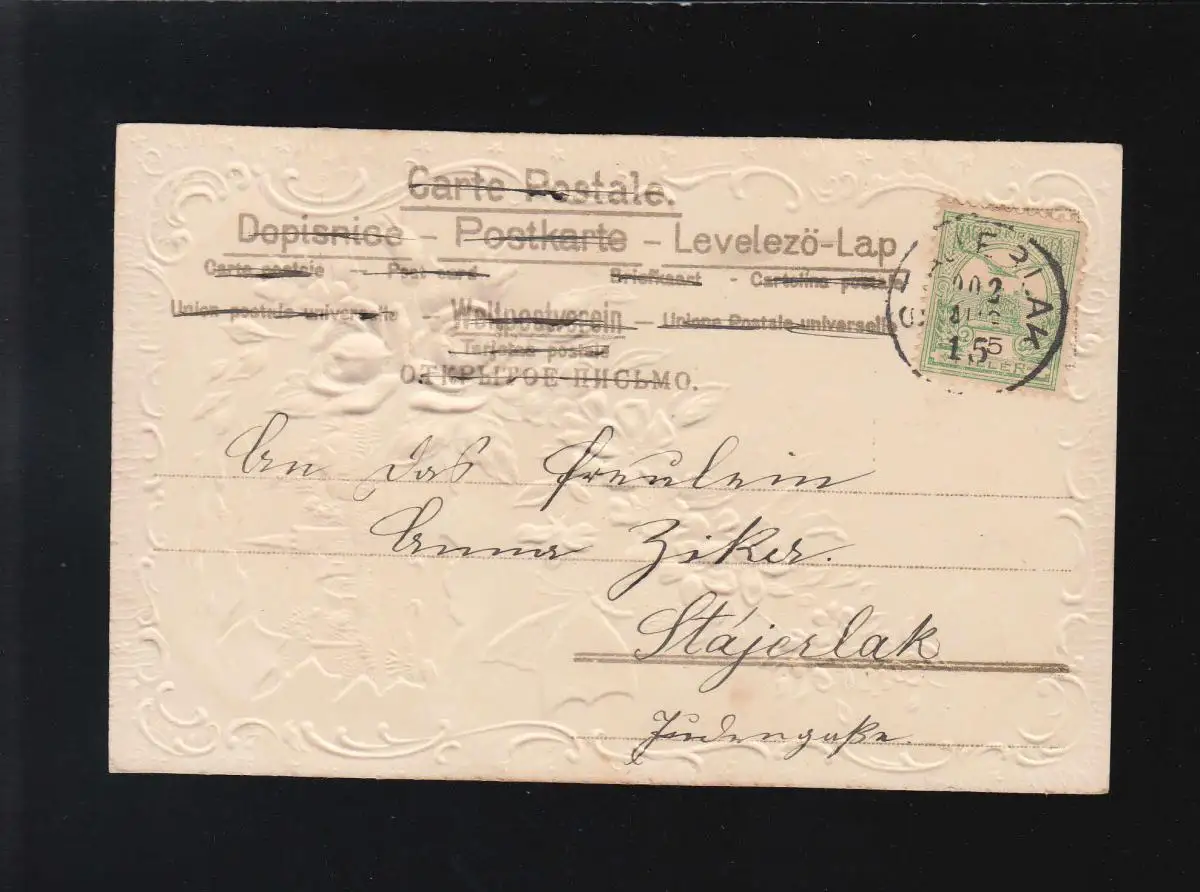 Carte Postale.
Dopisnice – Postkarte – Levelező-Lap
Carte postale – Post card Briefkaart – Cartolina postale
Union postale universelle – Weltpostverein – Unione Postale universelle
Tarjetas postale
ОТКРЫТОЕ ПИСЬМО.
902
15
5
An das Freulein
Anna Ziker.
Stájerlak
Judengaße.